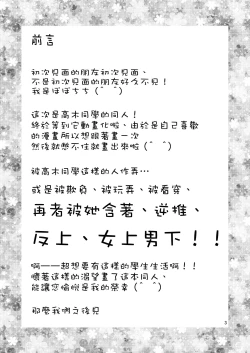 前言
初次見面的朋友初次見面、
不是初次見面的朋友好久不見！
我是ぽぽちち (＾ ＾)
這次是高木同學的同人！
終於等到它動畫化啦、由於是自己喜歡
的漫畫所以想跟著畫一次
然後就憋不住就畫出來啦 (＾ ＾)
被高木同學這樣的人作弄…
或是被欺負、被玩弄、被看穿、
再者被她含著、逆推、
反上、女上男下！！
啊——超想要有這樣的學生生活啊！！
懷著這樣的渴望畫了這本同人、
能讓您愉悅是我的榮幸 (＾ ＾)
那麼我們之後見
3